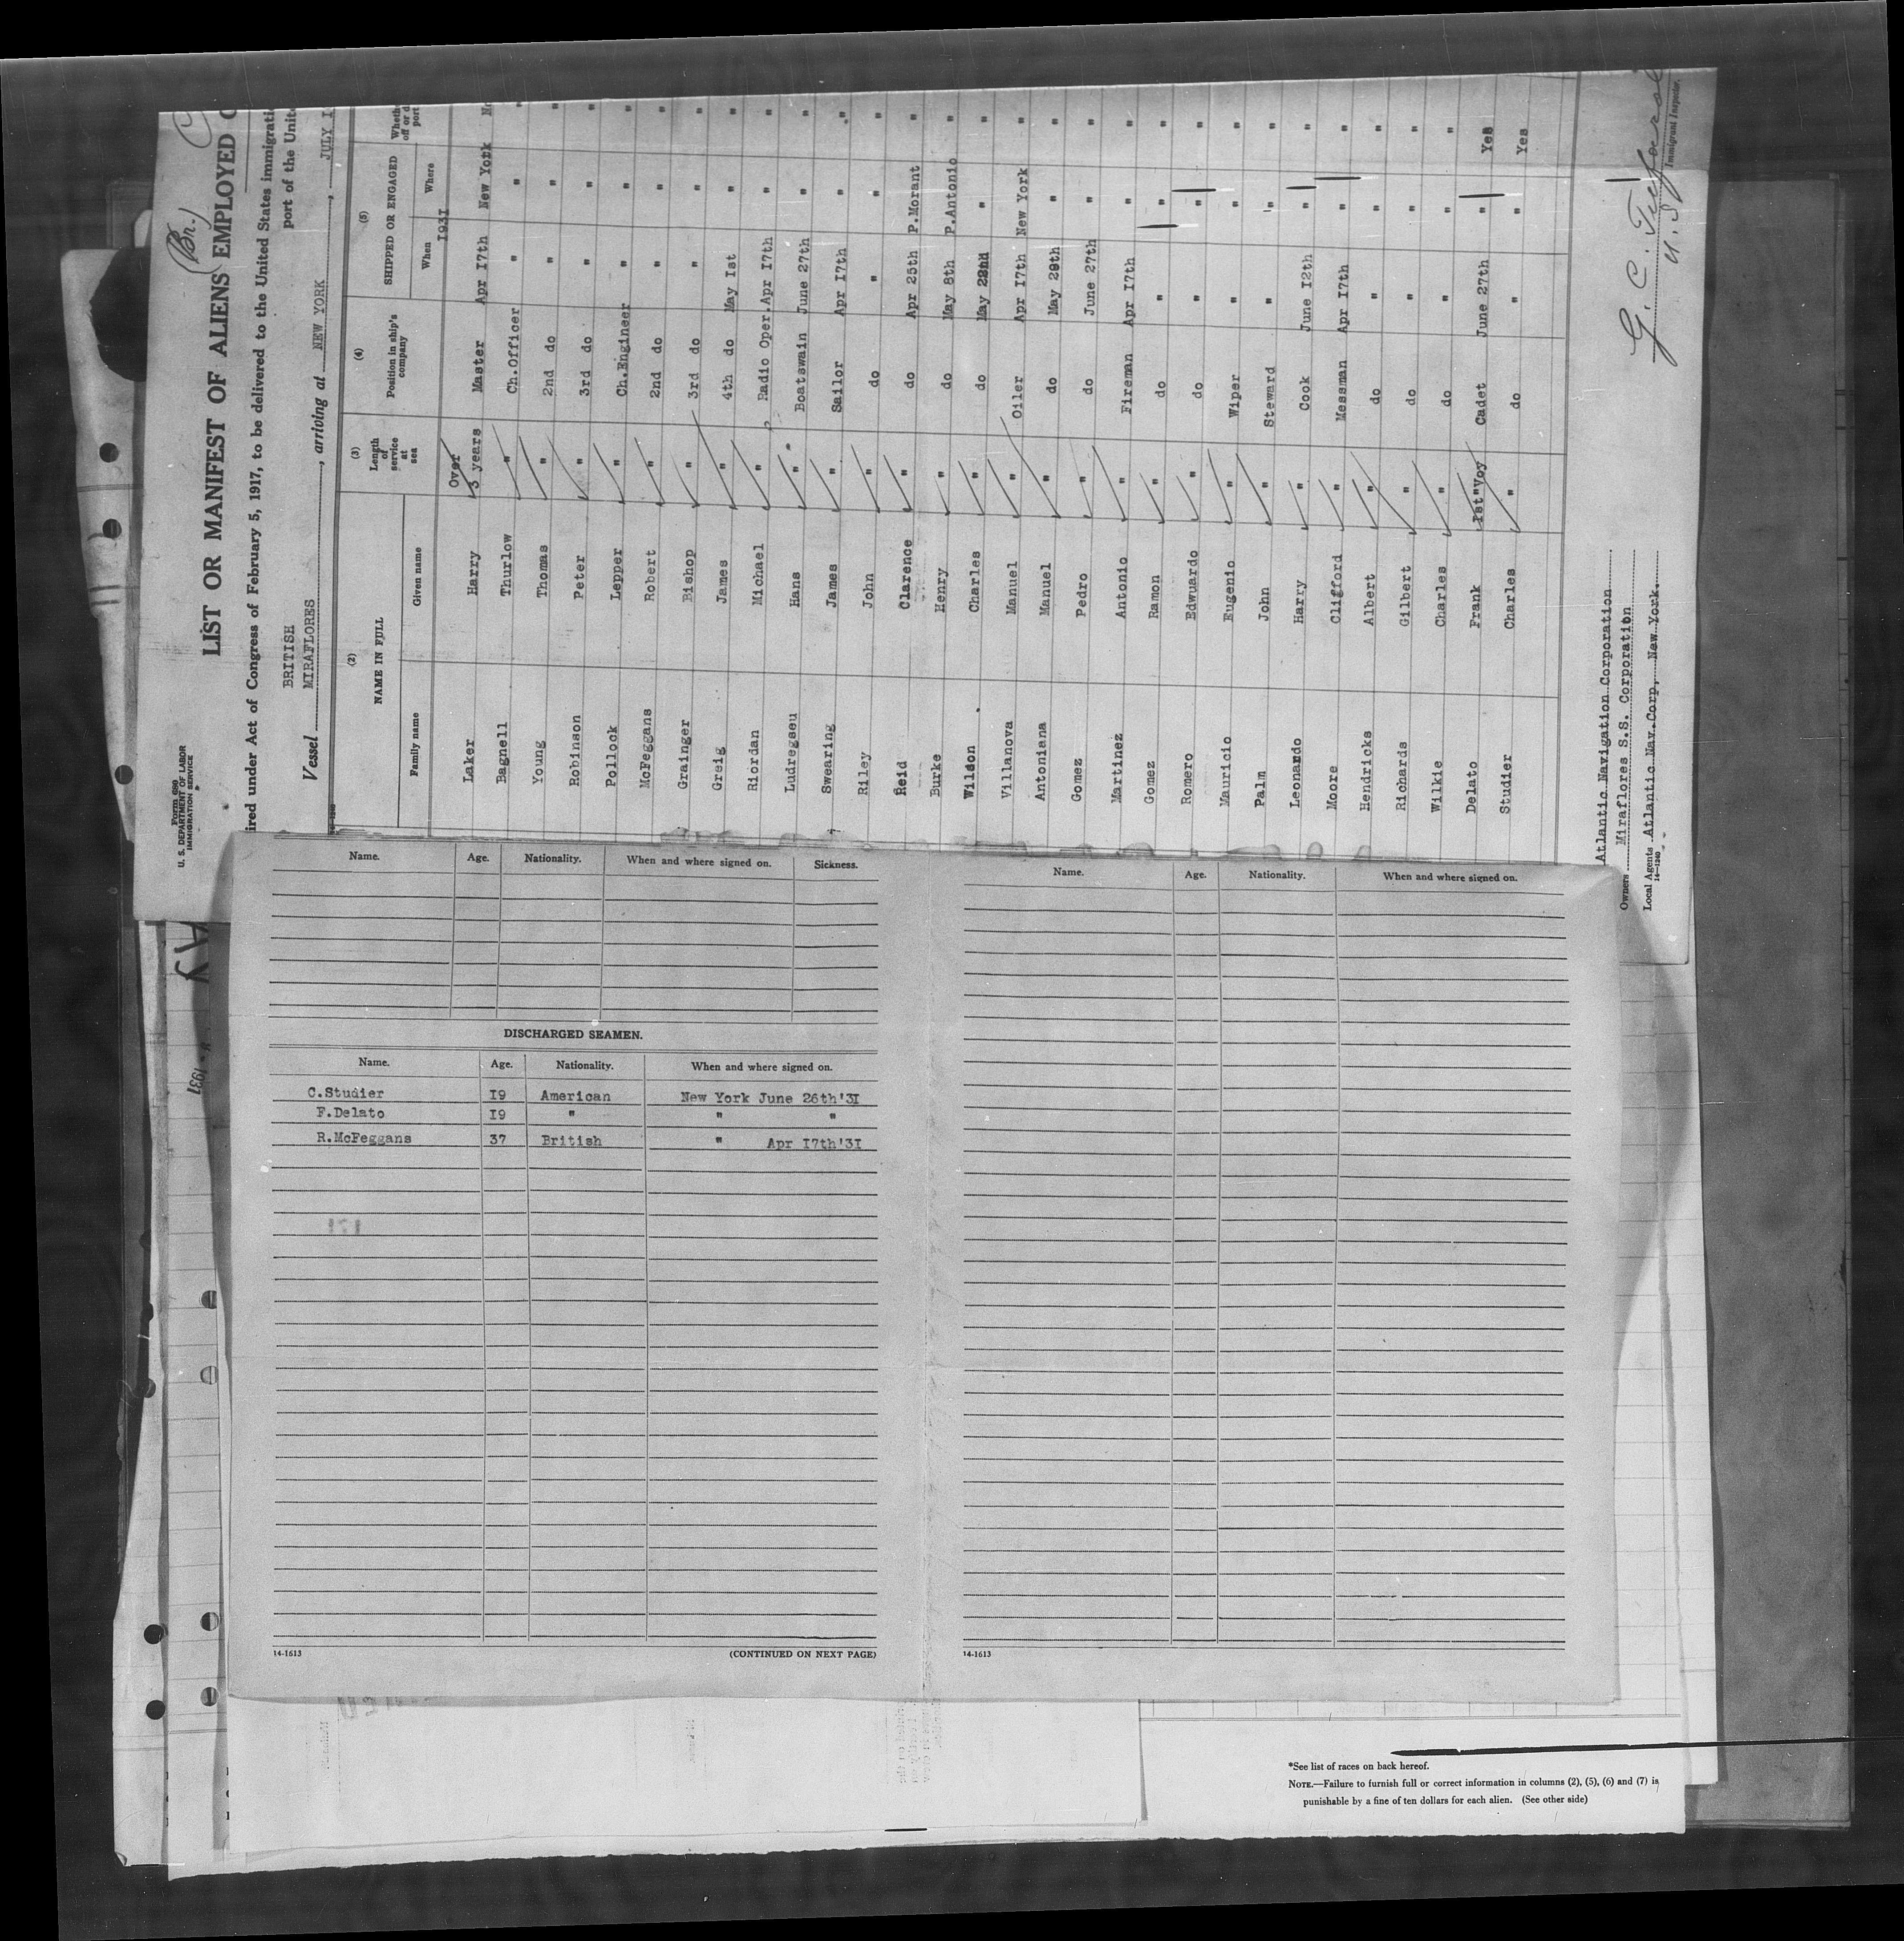 Form 686
U. S. DEPARTMENT OF LABOR
IMMIGRATION SERVICE
(Br.)
LIST OR MANIFEST OF ALIENS EMPLOYED
ired under Act of Congress of February 5, 1917, to be delivered to the United States immigrati
port of the Unite
BRITISH
Vessel MIRAFLORES, arriving at NEW YORK, JULY I
(2) (3) (4) (5)
NAME IN FULL Length of service at sea Position in ship's company SHIPPED OR ENGAGED
Family name Given name When Where
1931
Laker Harry Over 3 years Master Apr I7th New York
Bagnell Thurlow " Ch.Officer " " "
Young Thomas " 2nd do " " "
Robinson Peter " 3rd do " " "
Pollock Lepper " Ch.Engineer " " "
McFeggans Robert " 2nd do " " "
Grainger Bishop " 3rd do " " "
Greig James " 4th do May Ist " "
Riordan Michael " Radio Oper. Apr I7th " "
Ludregseu Hans " Boatswain June 27th " "
Swearing James " Sailor Apr I7th " "
Riley John " do " " "
Reid Clarence " do Apr 25th P.Morant "
Burke Henry " do May 8th P.Antonio "
Wilson Charles " do May 22nd " "
Villanova Manuel " Oiler Apr I7th New York "
Antoniana Manuel " do May 29th " "
Gomez Pedro " do June 27th " "
Martinez Antonio " Fireman Apr I7th " "
Gomez Ramon " do " " "
Romero Edwuardo " do " " "
Mauricio Eugenio " Wiper " " "
Palm John " Steward " " "
Leonardo Harry " Cook June I2th " "
Moore Cligford " Messman Apr I7th " "
Hendricks Albert " do " " "
Richards Gilbert " do " " "
Wilkie Charles " do " " "
Delato Frank Ist Voy Cadet June 27th " Yes
Studier Charles " do " " Yes
Atlantic Navigation Corporation
Owners Miraflores S.S. Corporation
Local Agents Atlantic Nav.Corp, New York.
14-1240
Immigrant Inspector.
Name. Age. Nationality. When and where signed on. Sickness.
DISCHARGED SEAMEN.
Name. Age. Nationality. When and where signed on.
C.Studier I9 American New York June 26th'3I
F.Delato I9 " " "
R.McFeggans 37 British " Apr I7th'3I
14-1613 (CONTINUED ON NEXT PAGE)
Name. Age. Nationality. When and where signed on.
14-1613
*See list of races on back hereof.
NOTE.—Failure to furnish full or correct information in columns (2), (5), (6) and (7) is
punishable by a fine of ten dollars for each alien. (See other side)